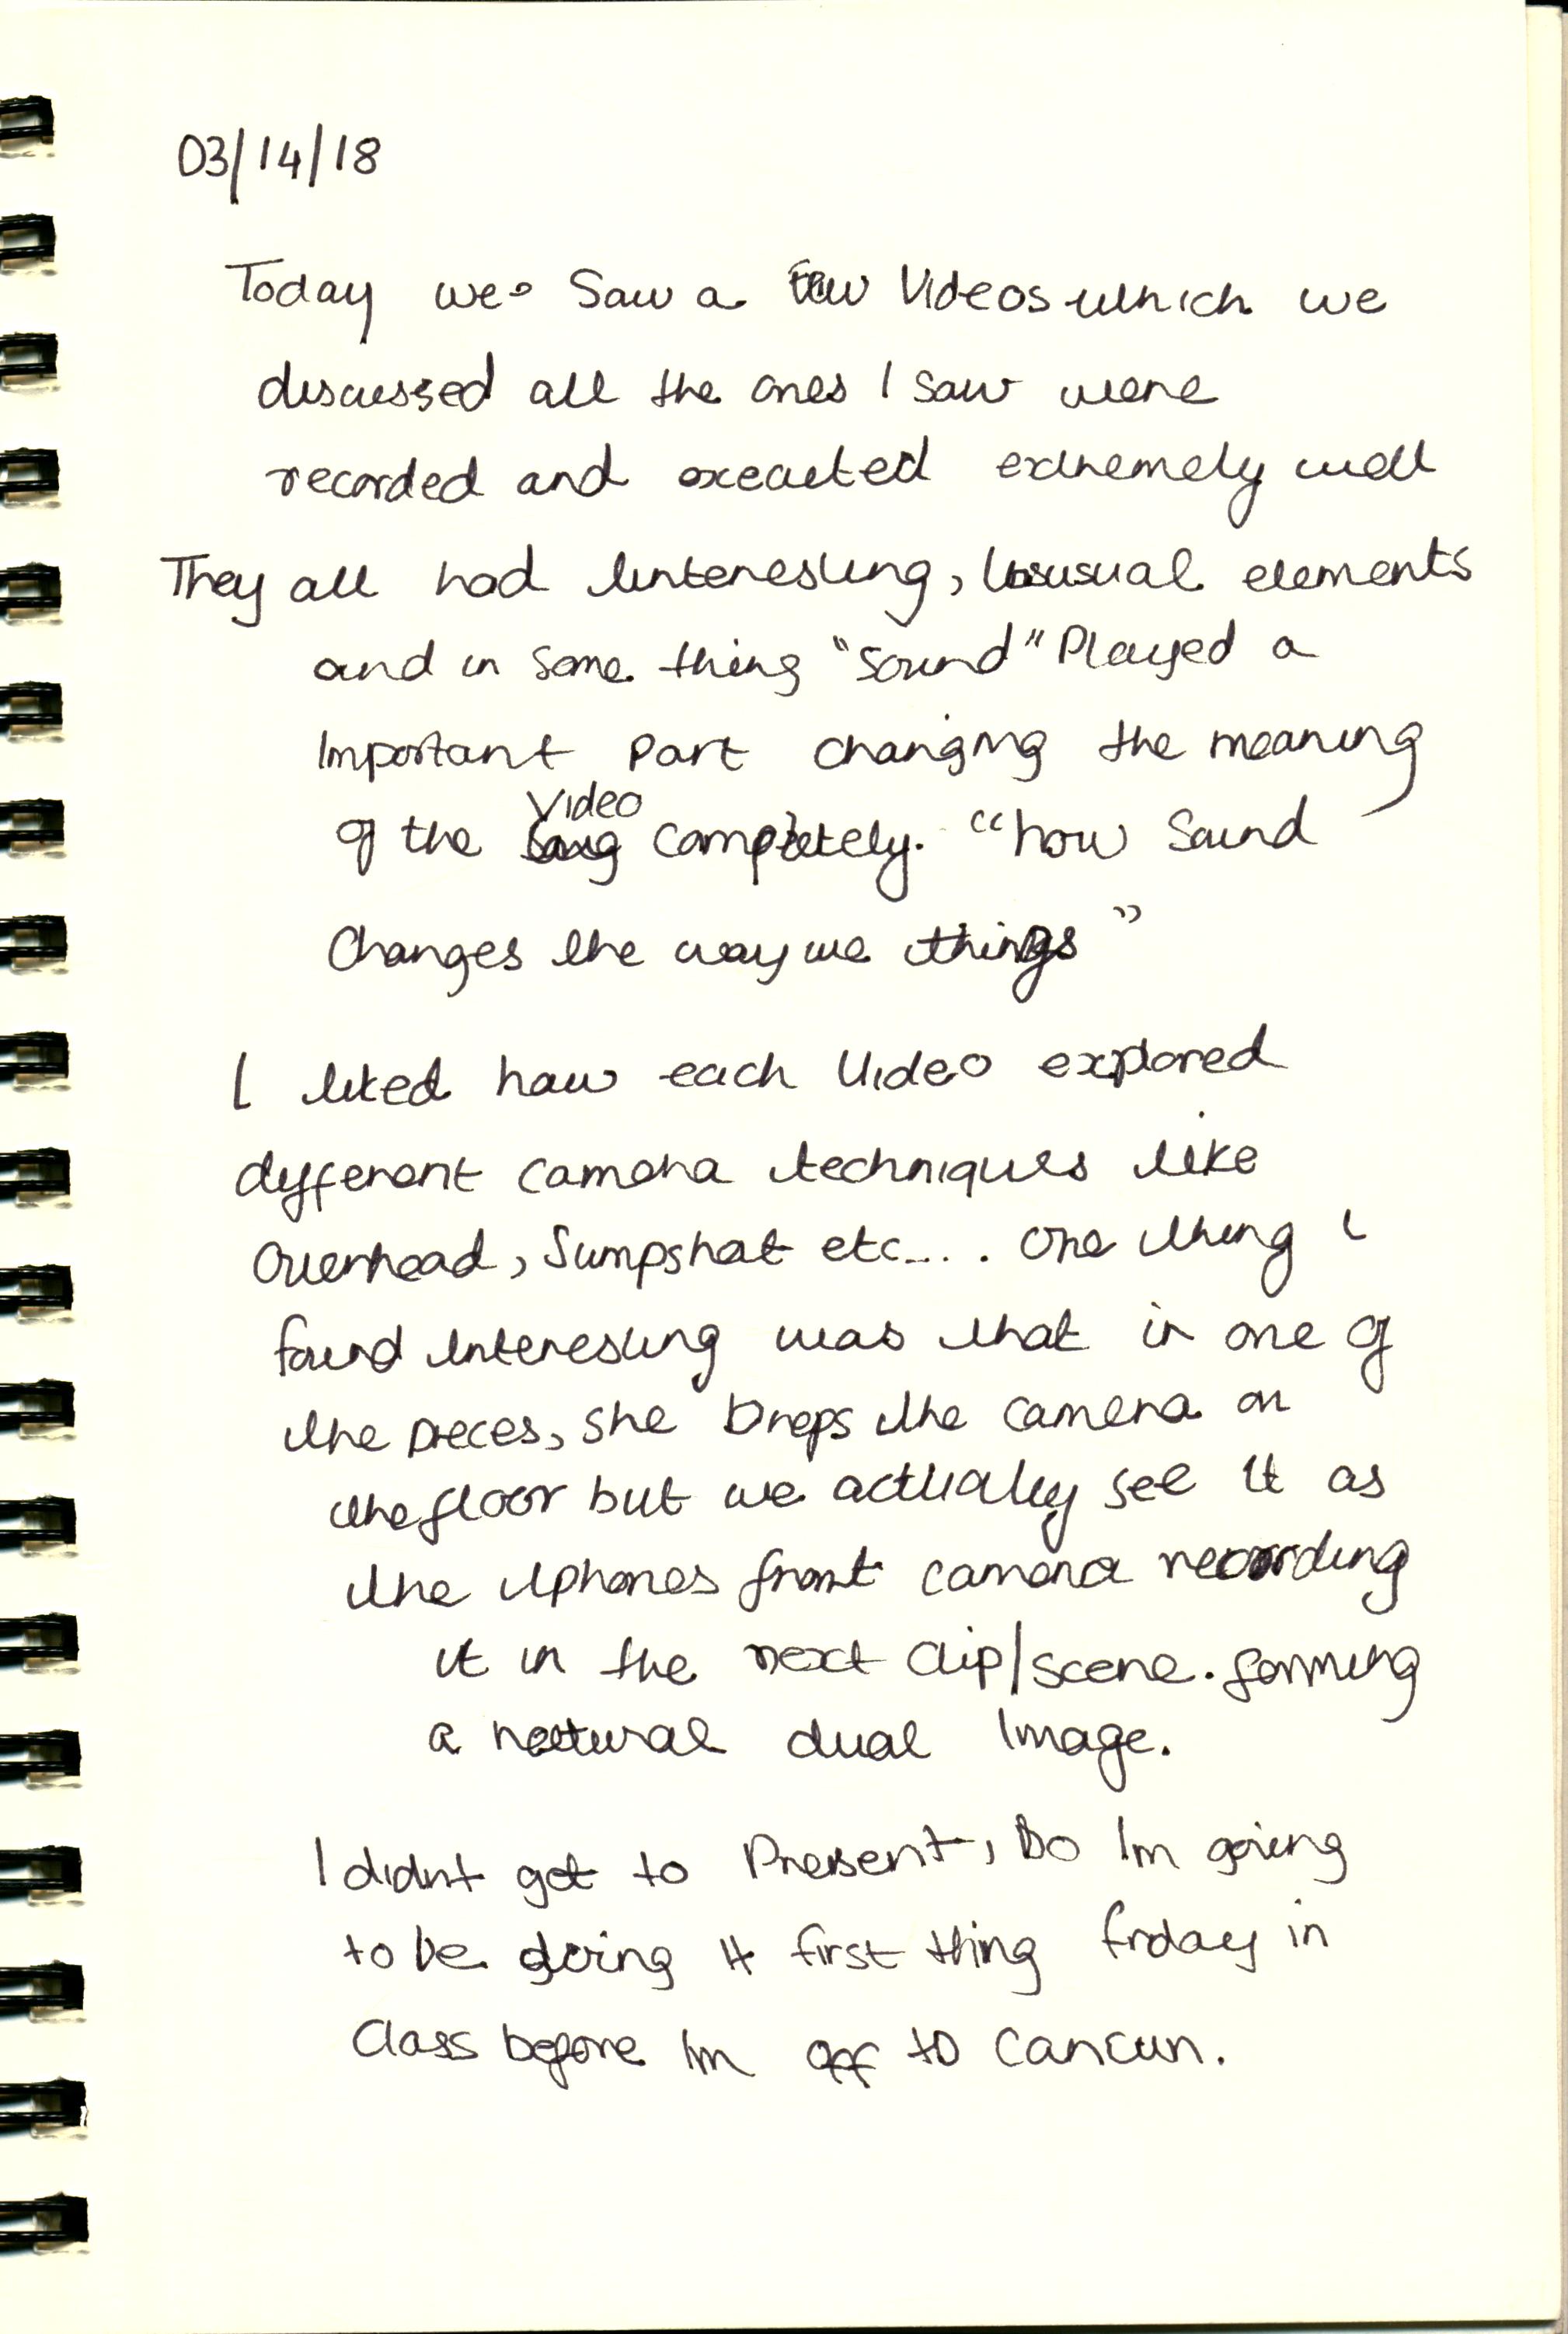 03/14/18
Today we saw a few Videos which we
discussed all the ones I saw were
recorded and executed extremely well
They all had interesting, usual elements
and in some thing "sound" Played a
Important Part changing the meaning
of the Video completely. "how Sound
Changes the way we things"
I liked how each Video explored
different camera techniques like
Overhead, Jumpshot etc.... One thing i
found interesting was that in one of
the pieces, she Drops the camera on
the floor but we actually see it as
the iphones front camera recording
it in the next clip/scene. forming
a natural dual Image.
I didnt get to Present, So Im going
to be doing it first thing friday in
Class before Im off to Cancun.